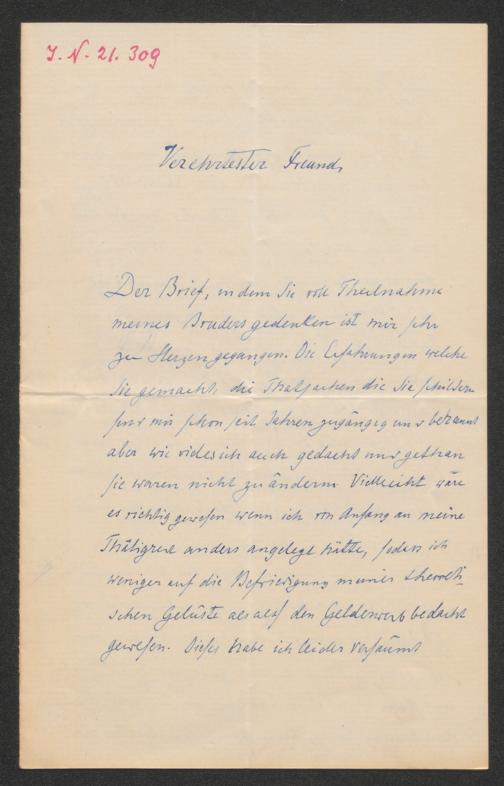 I. N. 21.309
Verehrtester Freund,
Der Brief, in dem Sie voll Theilnahme
meines Bruders gedenken ist mir sehr
zu Herzen gegangen. Die Erfahrungen welche
Sie gemacht, die Thatsachen die Sie schildern
sind mir schon seit Jahren zugängig und bekannt
aber wie vieles ich auch gedacht und gethan
sie waren nicht zu ändern. Vielleicht wäre
es richtig gewesen wenn ich von Anfang an meine
Thätigkeit anders angelegt hätte, indem ich
weniger auf die Befriedigung meiner theoreti-
schen Gelüste als auf den Gelderwerb bedacht
gewesen. Dieses habe ich leider versäumt